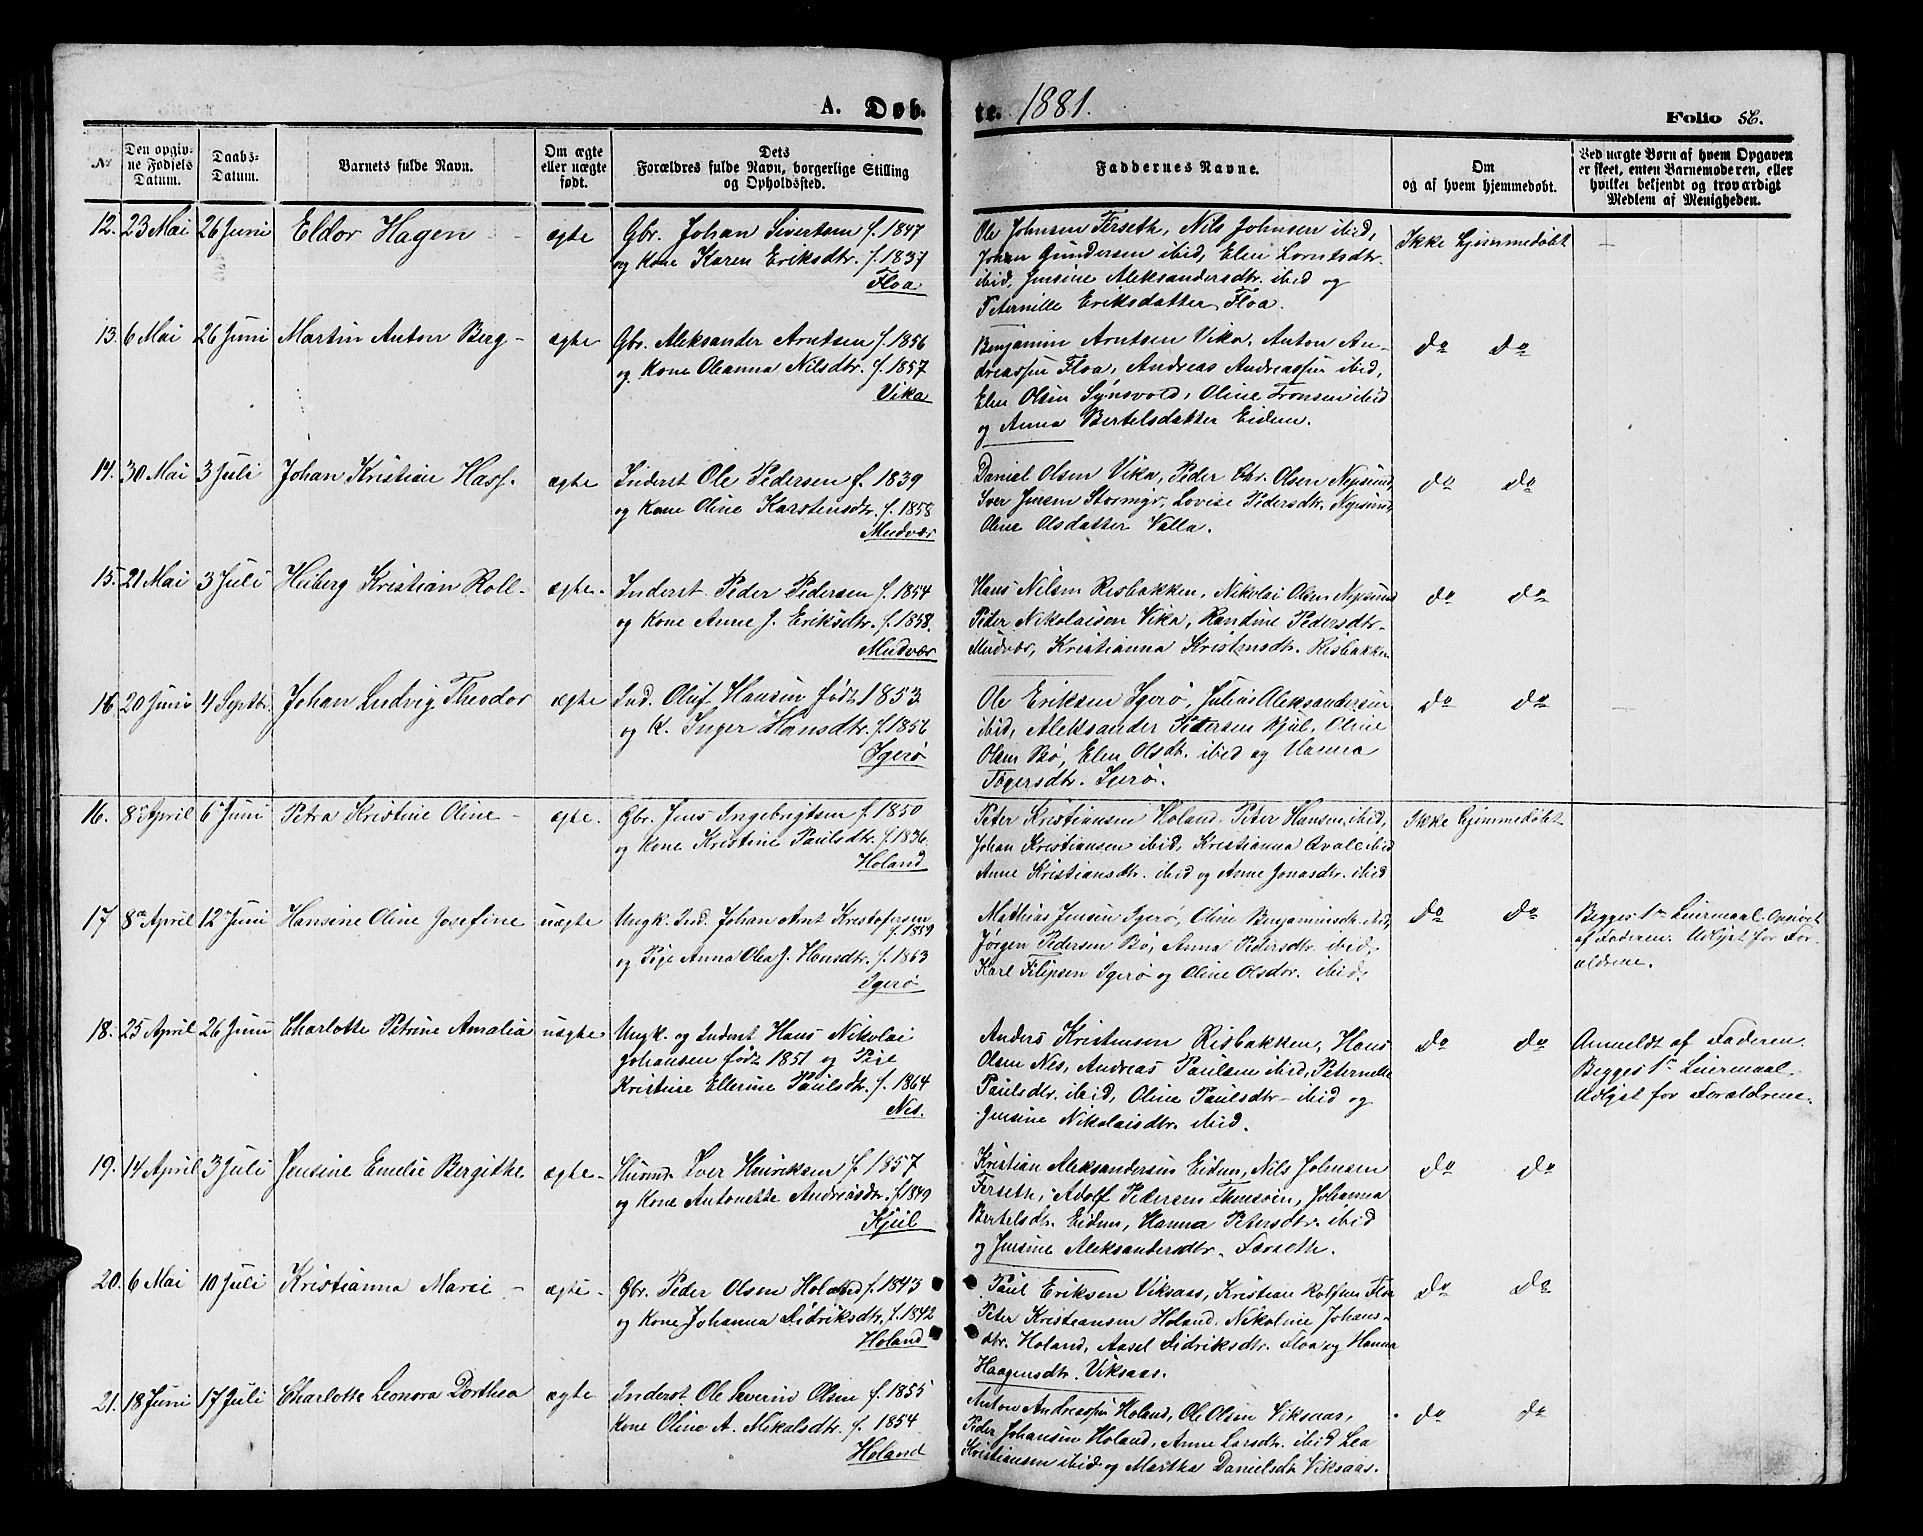 A. Døb.
te. 1881.
Folio 56.
No
Den opgiv-
ne Fødsels
Datum.
Daabs-
Datum.
Barnets fulde Navn.
Om ægte
eller uægte
født.
Dets
Forældres fulde Navn, borgerlige Stilling
og Opholdssted.
Faddernes Navne.
Om
og af hvem hjemmedøbt.
Ved uægte Børn af hvem Opgaven
er skeet, enten Barnemoderen, eller
hvilket bekjendt og troværdigt
Medlem af Menigheden.
12. 23 Mai 26 Juni Eldor Hagen - ægte Gbr. Johan Sivertsen f. 1847
og Kone Karen Eriksdtr. f. 1837
Floa
Ole Johnsen Ferseth, Nils Johnsen ibid,
Johan Gundersen ibid, Elen Lorntsdtr.
ibid, Jensine Aleksandersdtr. ibid og
Peternille Eriksdatter Floa.
Ikke hjemmedøbt
13. 6 Mai 26 Juni Martin Anton Berg - ægte Gbr. Aleksander Arntsen f. 1856
og Kone Oleanna Nilsdtr. f. 1857
Vika
Benjamin Arntsen Vika, Anton An-
dreassen Floa, Andreas Andreassen ibid,
Elen Olsen Synsvold, Oline Tronsen ibid
og Anna Bertelsdatter Eidem.
do do
14. 30 Mai 3 Juli Johan Kristian Hass. ægte Inderst Ole Pedersen f. 1839
og Kone Oline Karstensdtr. f. 1858
Mudvær
Daniel Olsen Vika, Peder Chr. Olsen Nepsund,
Iver Jensen Stormyr, Lovise Pedersdtr. Nepsund,
Oline Olsdatter Valla.
do do
15. 21 Mai 3 Juli Heiberg Kristian Roll- ægte- Inderst Peder Pedersen f. 1854
og Kone Anne J. Eriksdtr. f. 1858.
Mudvær
Hans Nilsen Risbakken, Nikolai Olsen Nepsund
Peter Nikolaisen Vika, Randine Pedersdtr-
Mudvær, Kristianna Kristensdtr. Risbakken
do do
16 20 Juni 4 Septbr. Johan Ludvig Theodor ægte Ind. Oluf Hansen født 1853
og K. Inger Hansdtr. f. 1856
Igerø
Ole Eriksen Igerø, Julius Aleksandersen
ibid, Aleksander Pedersen Kjul, Oline
Olsen Bø, Elen Olsdt. ibid og Hanna
Tøgersdtr. Igerø.
do do
16. 8de April 6te Juni Petra Kristine Oline - ægte. Gbr. Jens Ingebrigtsen f. 1850
og Kone Kristine Paulsdtr. f. 1836.
Holand
Peter Kristiansen Holand, Peter Hansen ibid,
Johan Kristiansen ibid, Kristianna ibid
Anne Kristiansdtr. ibid og Anne Jonasdtr. ibid
Ikke hjemmedøbt
17 8de April 12 Juni Hansine Oline Josefine uægte Ungk. Ind. Johan Arnt Kristofersen
f. 1859
og Pige Anna Olea J. Hansdtr. f. 1863
Igerø
Mathias Jensen Igerø, Oline Benjaminsdtr. ibid,
Jørgen Pedersen Bø, Anna Pedersdtr. ibid,
Karl Filipsen Igerø og Oline Olsdtr. ibid.
do do
Begges 1ste Leiermaal. Opgivet
af Faderen. Udlyst for For-
ældrene.
18. 25 April 26 Juni Charlotte Petrine Amalia uægte Ungk. og Inderst Hans Nikolai
Johansen født 1851 og Pige
Kristine Ellerine Paulsdtr. f. 1864
Nes.
Anders Kristensen Risbakken, Hans
Olsen Nes, Andreas Paulsen ibid, Peternelle
Paulsdtr. ibid, Oline Paulsdtr- ibid og
Jensine Nikolaisdtr. ibid.
do do
Anmeldt af Faderen.
Begges 1ste Leiermaal.
Udlyst for Forældrene.
19. 14 April 3 Juli Jensine Emelie Bergithe ægte- Husmd. Iver Henriksen f. 1857
og Kone Antonette Andreasdtr. f. 1849
Kjul
Kristian Aleksandersen Eidem, Nils Johnsen
Ferseth, Adolf Pedersen, Johanna
Bertelsdtr. Eidem, Hanna Petersdtr. ibid
og Jensine Aleksandersdtr. Færseth.
do do
20. 6 Mai 10 Juli Kristianna Marie - ægte- Gbr. Peder Olsen Holand f. 1843
og Kone Johanna Didriksdtr. f. 1842
Holand
Paul Eriksen Viksaas, Kristian Rolfsen Floa
Peter Kristiansen Holand, Nikoline Johans-
dtr. Holand, Aasel Didriksdtr. Floa og Hanna
Haagensdtr. Viksaas.
do do
21. 18 Juni 17 Juli Charlotte Leonora Dorthea ægte Inderst Ole Severin Olsen f. 1855
Kone Oline A. Mikalsdtr. f. 1854
Holand
Anton Andreassen Holand, Ole Olsen Viksaas,
Peder Johansen Holand, Anne Larsdtr. ibid Lea
Kristiansen ibid og Martha Danielsdtr Viksaas.
do do